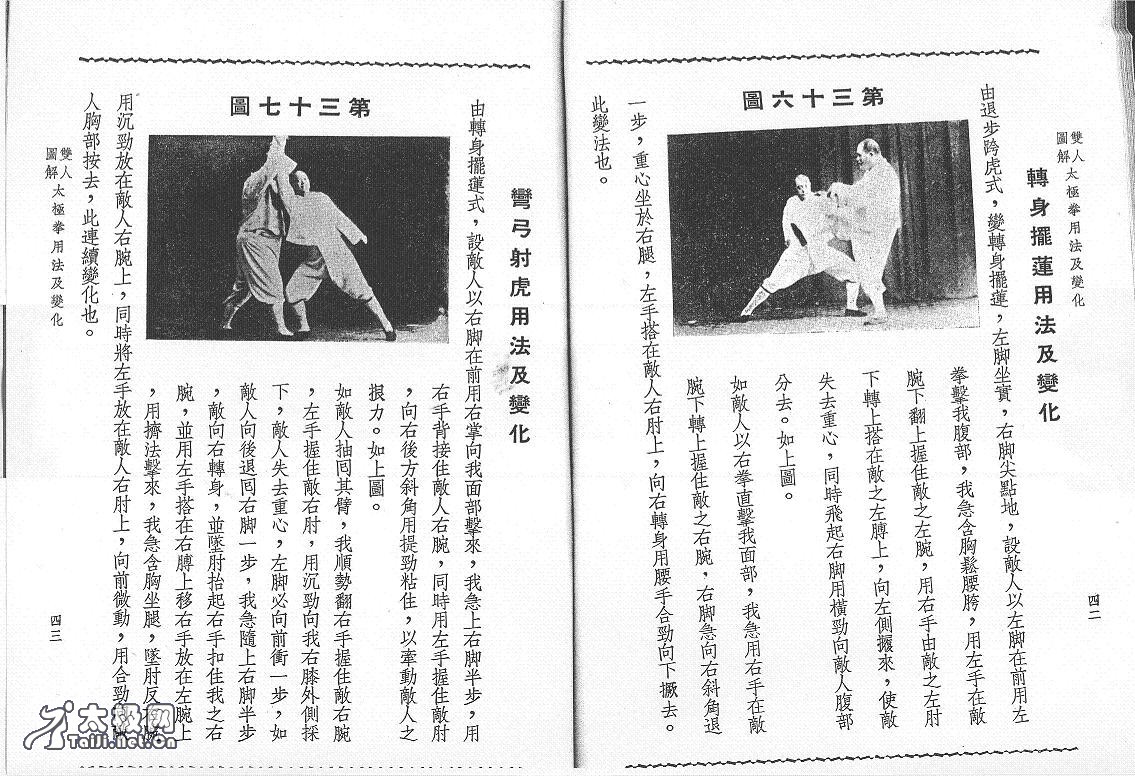 雙人圖解 太極拳用法及變化
四二
轉身擺蓮用法及變化
由退步跨虎式，變轉身擺蓮，左脚坐實，右脚尖點地，設敵人以左脚在前用左
拳擊我腹部，我急含胸鬆腰胯，用左手在敵
腕下翻上握住敵之左腕，用右手由敵之左肘
下轉上搭在敵之左膊上，向左側攦來，使敵
失去重心，同時飛起右脚用橫勁向敵人腹部
分去。如上圖。
如敵人以右拳直擊我面部，我急用右手在敵
腕下轉上握住敵之右腕，右脚急向右斜角退
第三十六圖
一步，重心坐於右腿，左手搭在敵人右肘上，向右轉身用腰手合勁向下撅去。
此變法也。
彎弓射虎用法及變化
由轉身擺蓮式，設敵人以右脚在前用右掌向我面部擊來，我急上右脚半步，用
右手背接住敵人右腕，同時用左手握住敵肘
，向右後方斜角用提勁粘住，以牽動敵人之
掤力。如上圖。
如敵人抽囘其臂，我順勢翻右手握住敵右腕
，左手握住敵右肘，用沉勁向我右膝外側採
下，敵人失去重心，左脚必向前衝一步，如
敵人向後退囘右脚一步，我急隨上右脚半步
，敵向右轉身，並墜肘抬起右手扣住我之右
腕，並用左手搭在右膊上移右手放在左腕上
，用擠法擊來，我急含胸坐腿，墜肘反
第三十七圖
用沉勁放在敵人右腕上，同時將左手放在敵人右肘上，向前微動，用合勁
人胸部按去，此連續變化也。
雙人圖解 太極拳用法及變化
四三
太极网
Taiji.net.cn